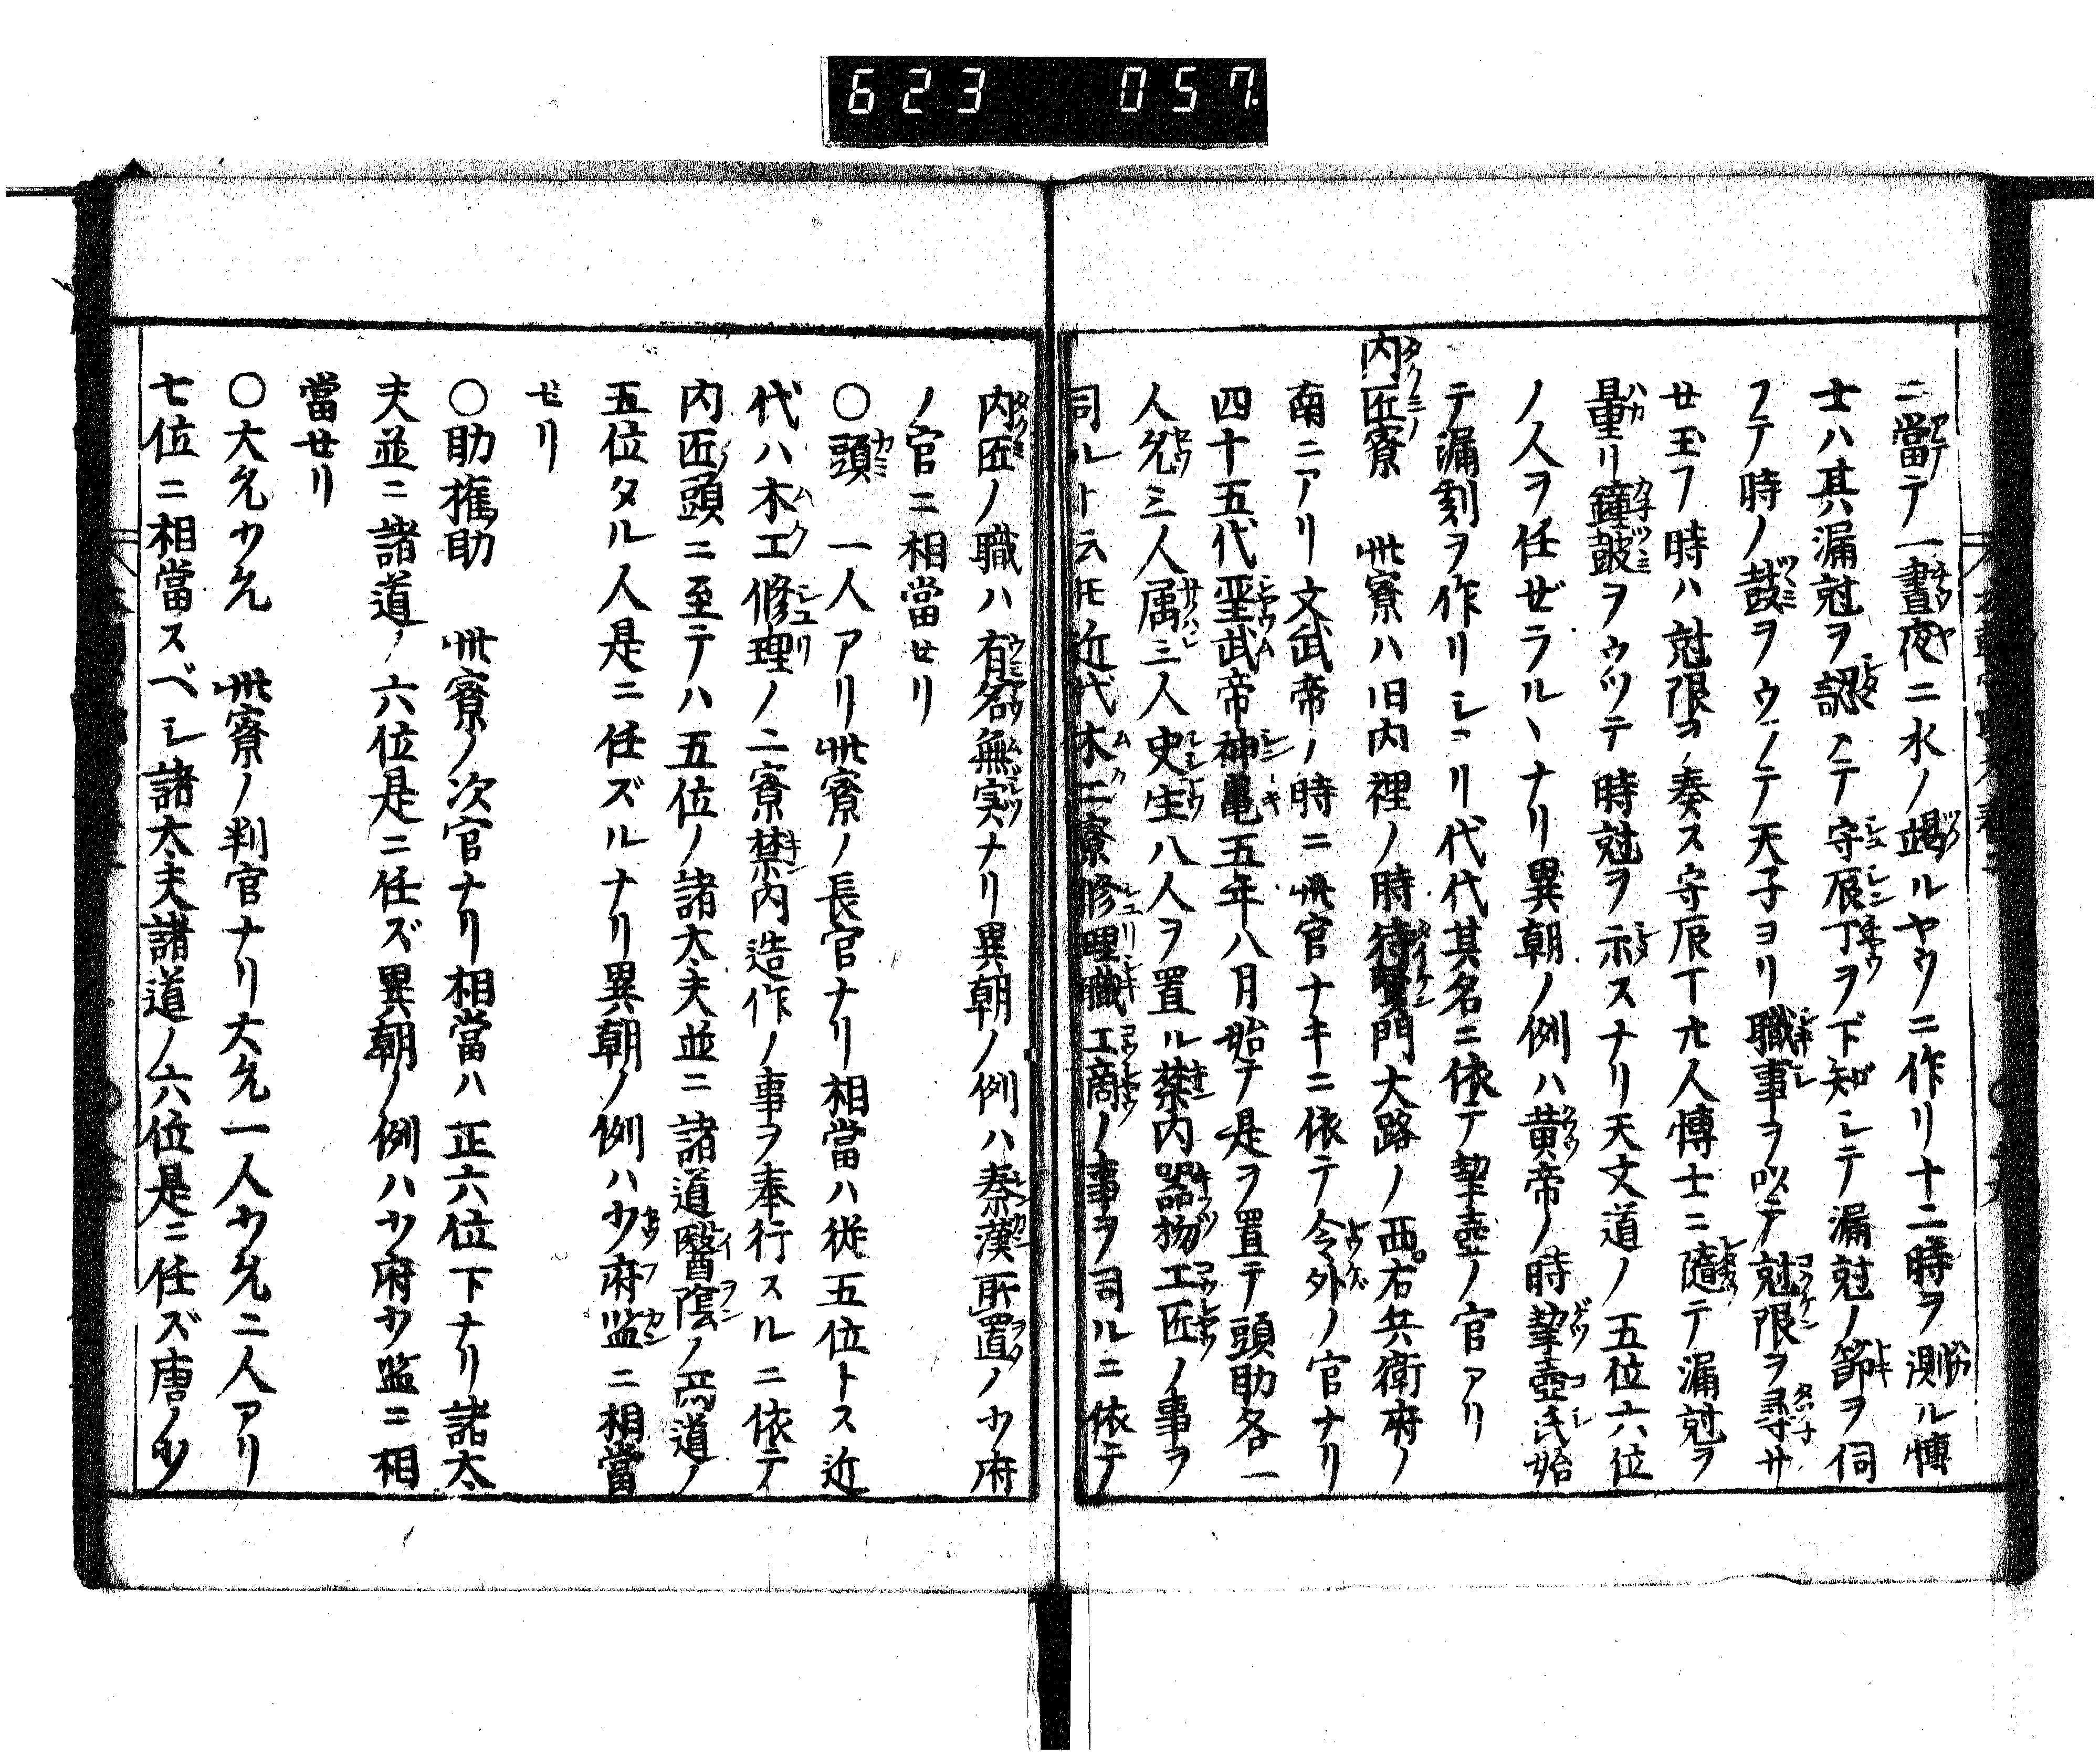 623 057
ニ當テ一晝夜ニ水ノ竭ルヤウニ作リ十二時ヲ測ル博
士ハ其漏尅ヲ認メテ守辰丁ヲ下知シテ漏尅ノ節ヲ伺
フテ時ノ鼓ヲウツテ天子ヨリ職事ヲ以テ尅限ヲ尋サ
せ玉フ時ハ尅限ヲ奏ス守辰丁六人博士ニ隨テ漏尅ヲ
量リ鐘鼓ヲウツテ時尅ヲ示スナリ天文道ノ五位六位
ノ人ヲ任ぜラルヽナリ異朝ノ例ハ黄帝ノ時挈壺氏始
テ漏刻ヲ作リシヨリ代代其名ニ依テ挈壺ノ官アリ
内匠寮　此寮ハ旧内裡ノ時待賢門大路ノ西右兵衛府ノ
南ニアリ文武帝ノ時ニ此官ナキニ依テ令外ノ官ナリ
四十五代聖武帝神亀五年八月始テ是ヲ置テ頭助各一
人允三人属三人史生八人ヲ置ル禁内器物工匠ノ事ヲ
司ルト云𪜈近代木工寮修理職工商ノ事ヲ司ルニ依テ
内匠ノ職ハ有名無実ナリ異朝ノ例ハ秦漢所置ノ少府
ノ官ニ相當せリ
〇頭　一人アリ此寮ノ長官ナリ相當ハ従五位トス近
代ハ木工修理ノ二寮禁内造作ノ事ヲ奉行スルニ依テ
内匠ノ頭ニ至テハ五位ノ諸太夫並ニ諸道醫陰ノ両道ノ
五位タル人是ニ任ズルナリ異朝ノ例ハ少府監ニ相當
せリ
〇助権助　此寮ノ次官ナリ相當ハ正六位下ナリ諸太
夫並ニ諸道ノ六位是ニ任ズ異朝ノ例ハ少府少監ニ相
當せリ
〇大允少允　此寮ノ判官ナリ大允一人少允二人アリ
七位ニ相當スベシ諸太夫諸道ノ六位是ニ任ズ唐ノ少